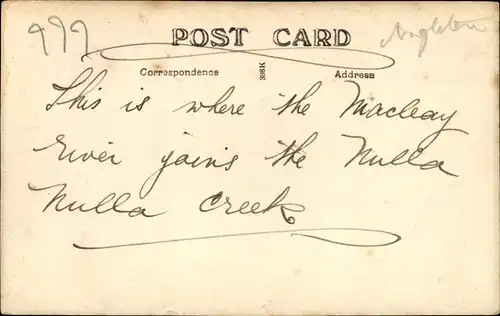 999
POST CARD
Correspondence
398K
Address
This is where the Macleay
river joins the Nulla
Nulla Creek